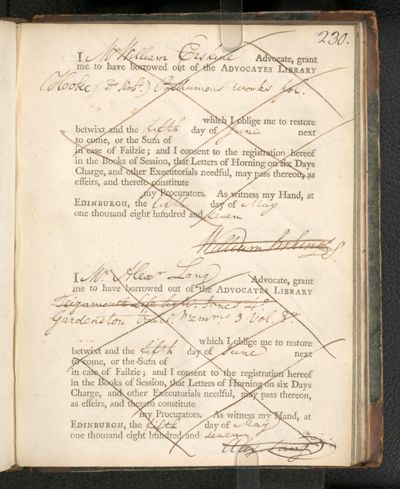 230.
I Mr William Erskine Advocate, grant
me to have borrowed out of the ADVOCATES LIBRARY
(Hooke (Dr Robt.) Posthumous works fo.
which I oblige me to restore
betwixt and the fifth day of June next
to come, or the Sum of
in case of Failzie; and I consent to the registration hereof
in the Books of Session, that Letters of Horning on six Days
Charge, and other Executorials needful, may pass thereon, as
effeirs, and thereto constitute
my Procurators. As witness my Hand, at
EDINBURGH, the fifth day of May
one thousand eight hundred and seven
William Erskine
I Mr Alexr Lang Advocate, grant
me to have borrowed out of the ADVOCATES LIBRARY
Gardenston Trav. Memms 3 Vol. 8o
which I oblige me to restore
betwixt and the fifth day of June next
to come, or the Sum of
in case of Failzie; and I consent to the registration hereof
in the Books of Session, that Letters of Horning on six Days
Charge, and other Executorials needful, may pass thereon,
as effeirs, and thereto constitute
my Procurators. As witness my Hand, at
EDINBURGH, the fifth day of May
one thousand eight hundred and seven
Alexr Lang